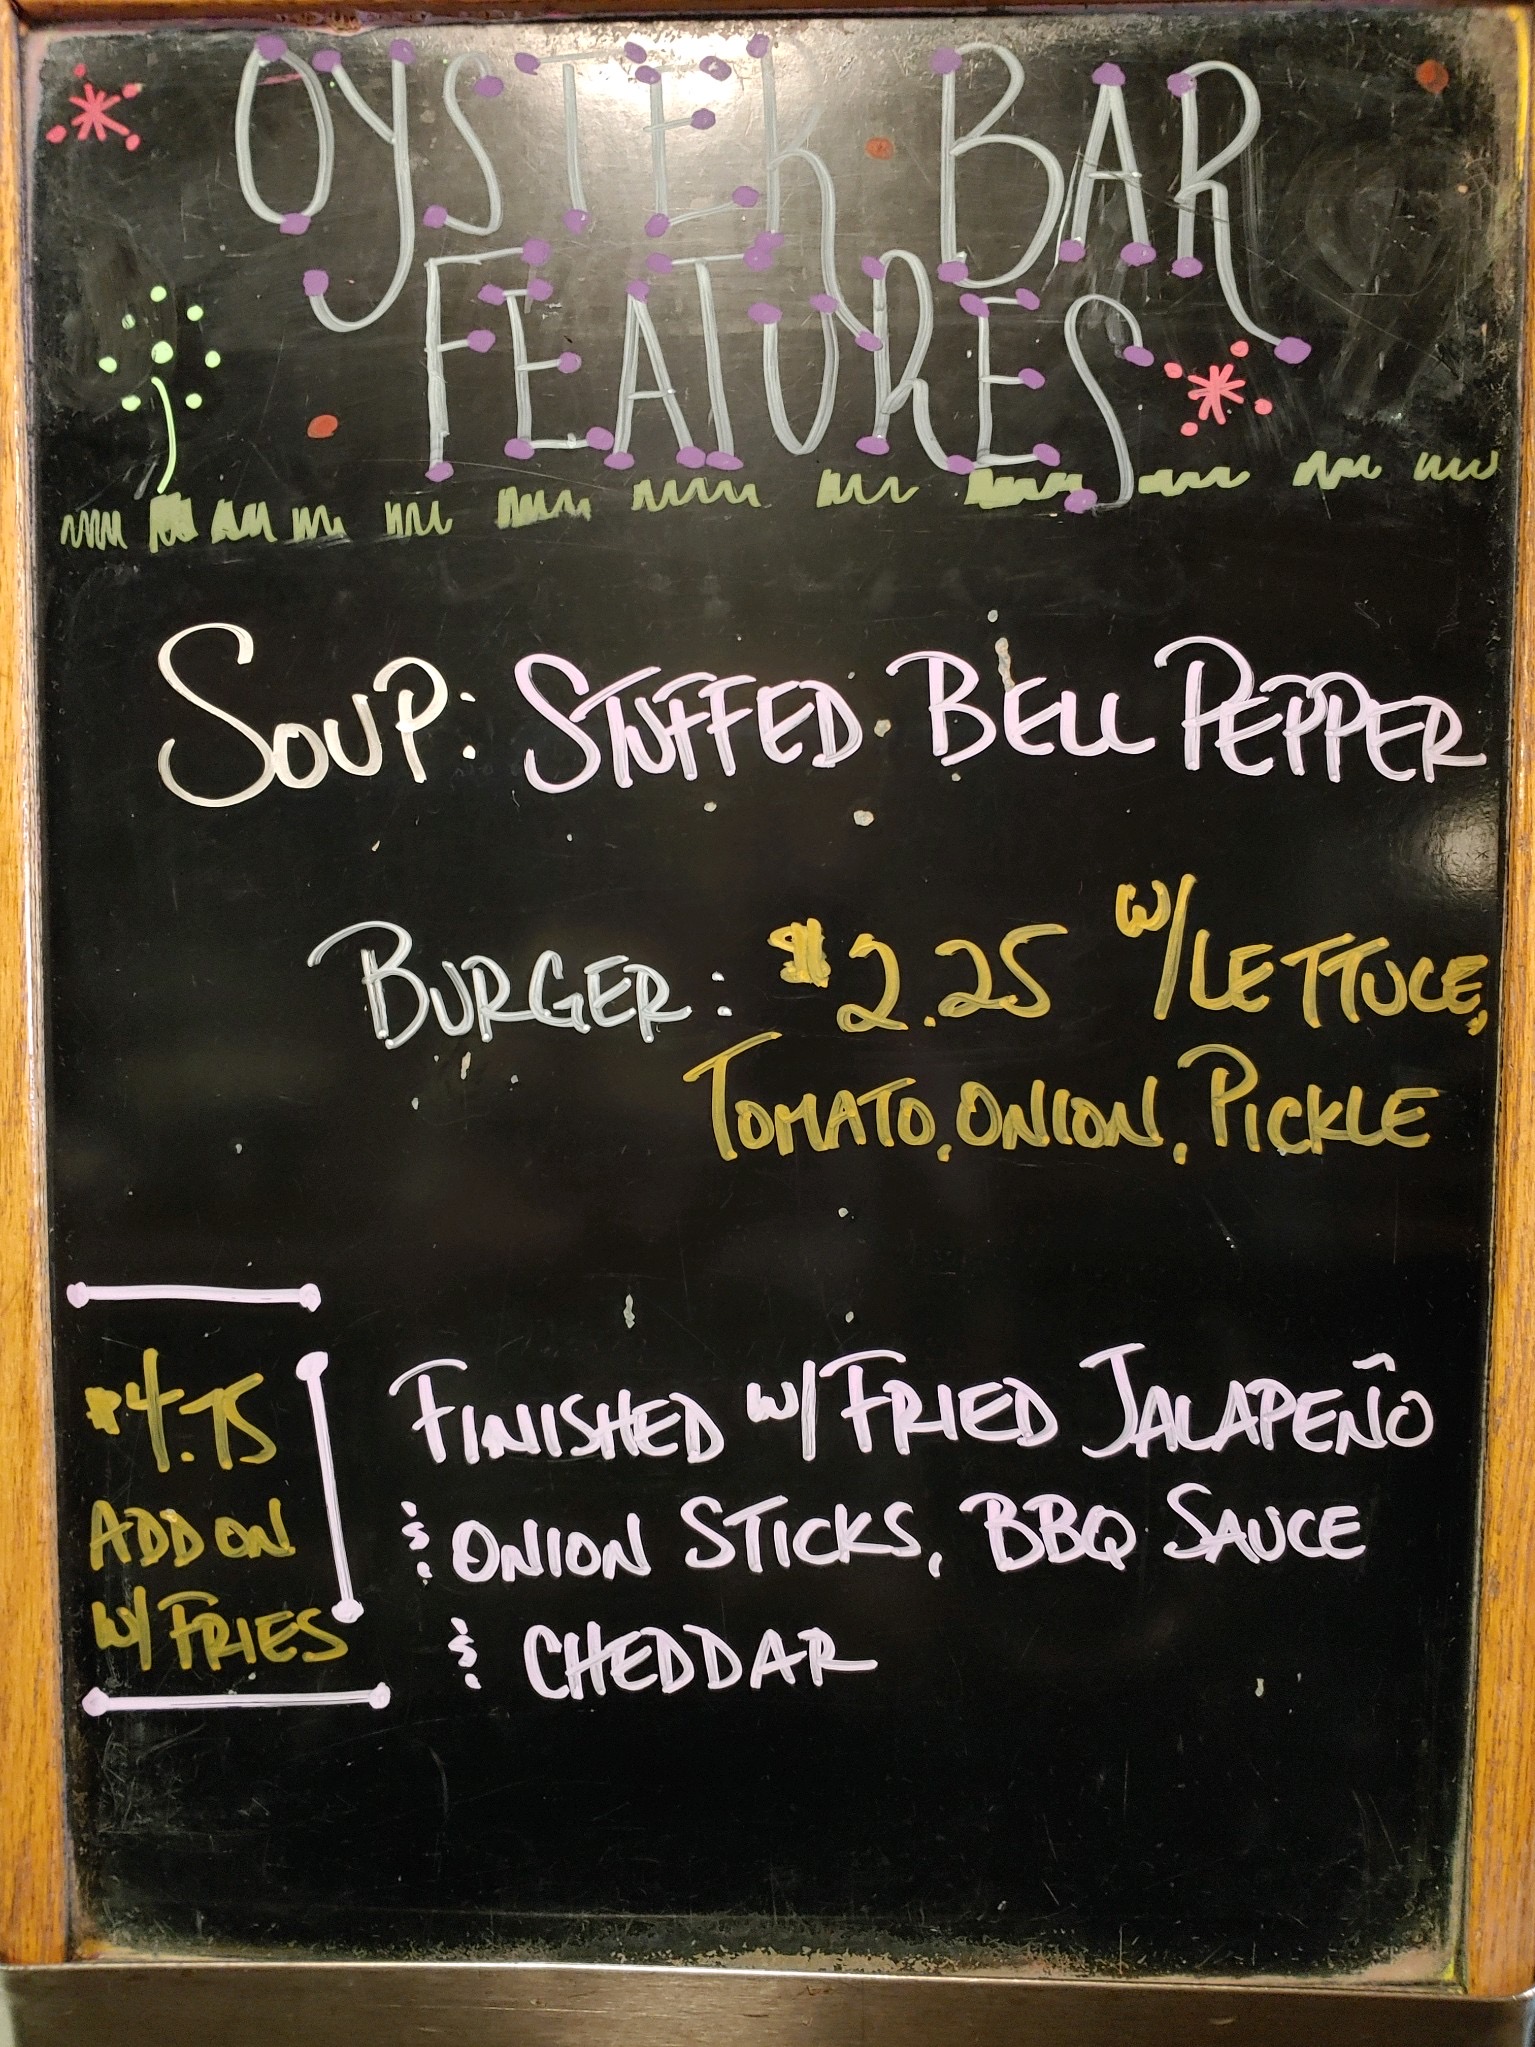 OYSTER BAR
FEATURES
SOUP: STUFFED BELL PEPPER
BURGER: $2.25 W/LETTUCE,
TOMATO, ONION, PICKLE
$4.75
ADD ON
W/ FRIES
FINISHED W/FRIED JALAPEÑO
& ONION STICKS, BBQ SAUCE
& CHEDDAR